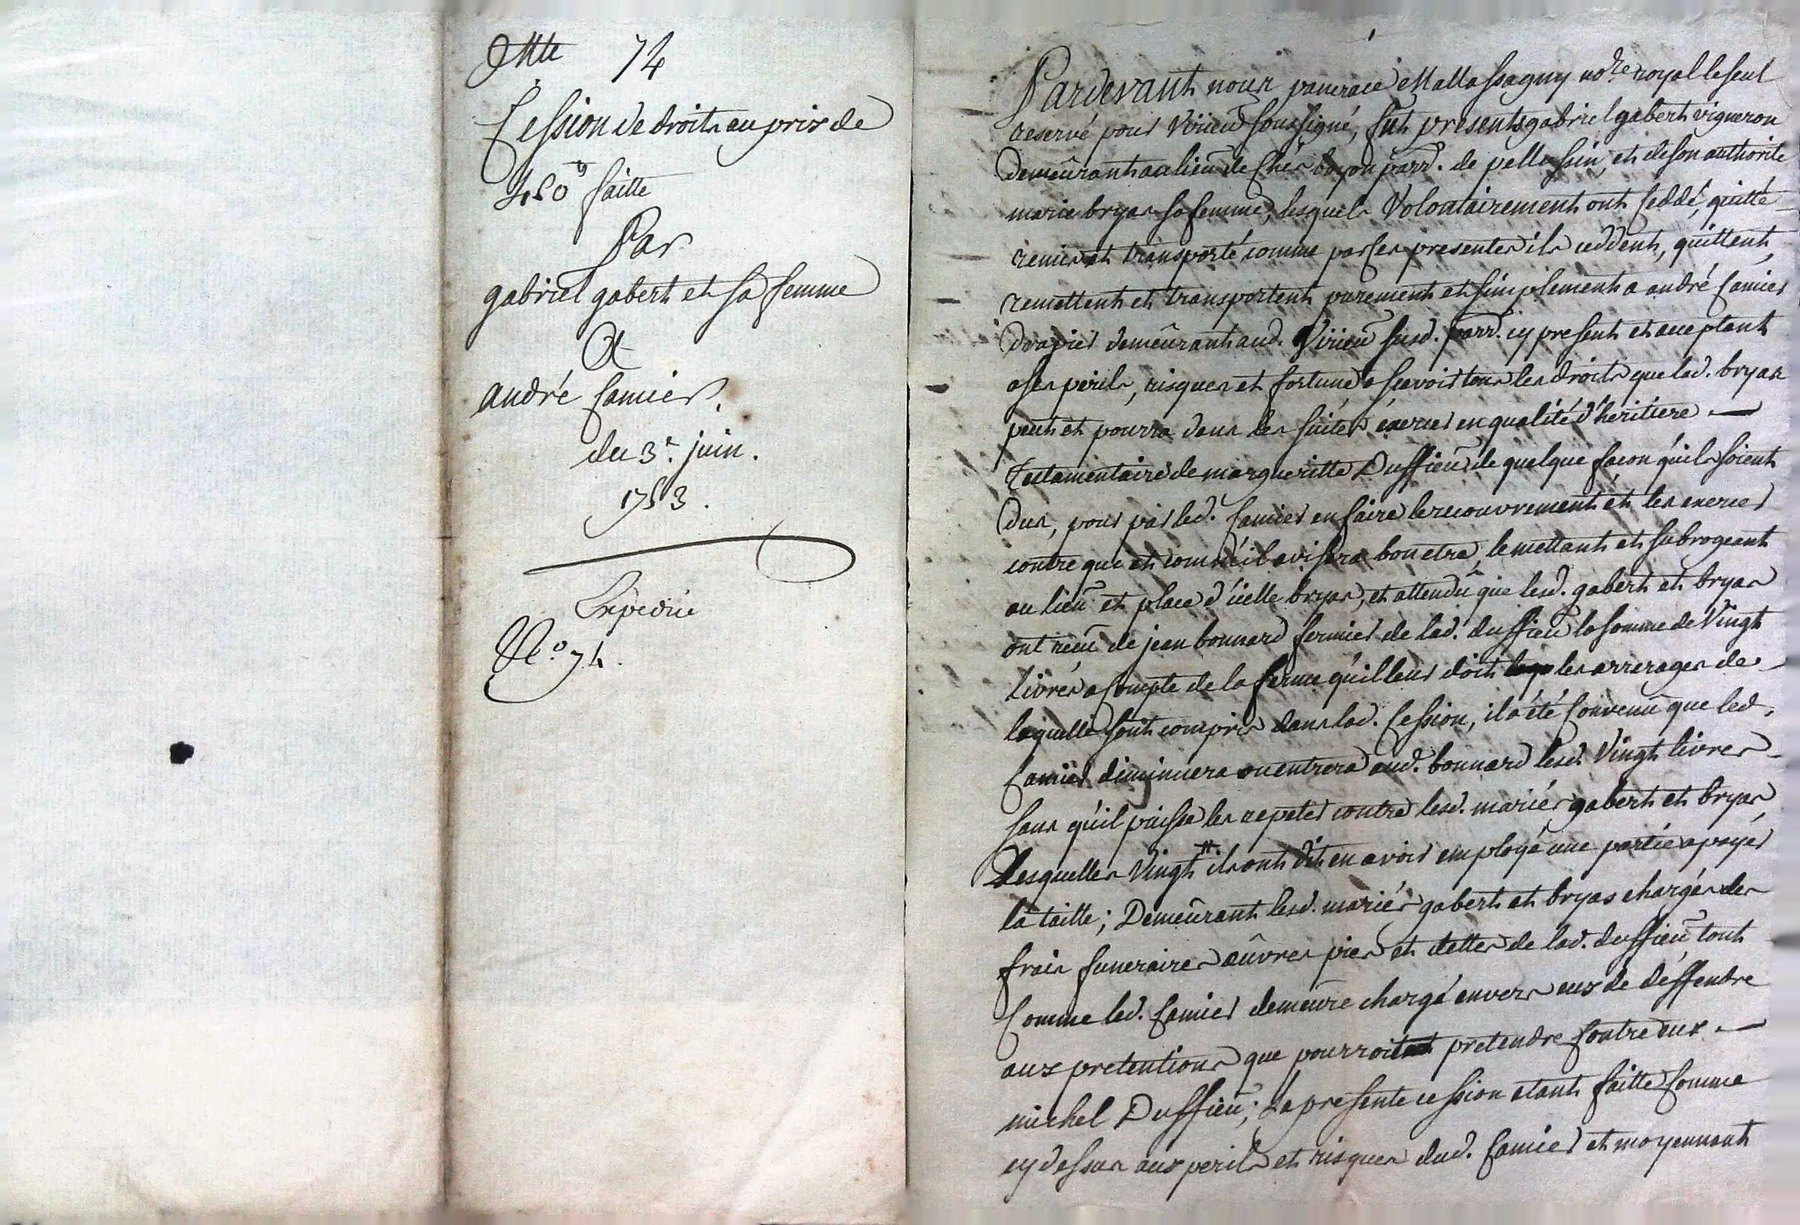 74
Cession de droits au prix de
450# faitte
Par
gabriel gabert et sa femme
A
andré Camier.
du 3e. juin.
1753.
Expediée
No. 74.
Pardevant nous pancrace Mallassagny nore. royal le seul
reservé pour Virieu soussigné, fut presents gabriel gabert vigneron
demeurant au lieu de Chés boyon parr. de pellussin, et de son authorité
marie bryas sa femme, lesquels Volontairement ont ceddé, quitté
remis et transporté comme par ses presentes ils ceddent, quittent,
remettent et transportent purement et simplement a andré Camier
drapier demeurant aud. Virieu susd. parr. icy present et acceptant
a ses perils, risques et fortune a scavoir tous les droits que lad. bryas
peut et pourra dans les suites exercer en qualité d'heritiere
testamentaire de margueritte Duffieu de quelque facon qu'ils soient
dus, pour par led. Camier en faire le recouvrement et les exercer
contre qui et comm'il avisera bon etre, le mettant et subrogeant
au lieu et place d'icelle bryas, et attendu que lesd. gabert et bryas
ont receu de jean bonnard fermier de lad. duffieu la somme de Vingt
livres a compte de la ferme qu'il leur doit les arrerages de
laquelle sont compris dans lad. Cession, il a été convenu que led.
Camier diminuera ou entrera aud. bonnard lesd. Vingt livres
sans qu'il puisse les repeter contre lesd. mariés gabert et bryas,
desquelles Vingt# ils ont dit en avoir employé une partie a payer
la taille; Demeurant lesd. mariés gabert et bryas chargés des
frais funeraires œuvres pies et dettes de lad. duffieu tout
Comme led. Camier demeure chargé envers eux de deffendre
aux pretentions que pourroit pretendre Contre eux
michel Duffieu; La presente cession etant faitte Comme
cy dessus aux perils et risques dud. Camier et moyennant